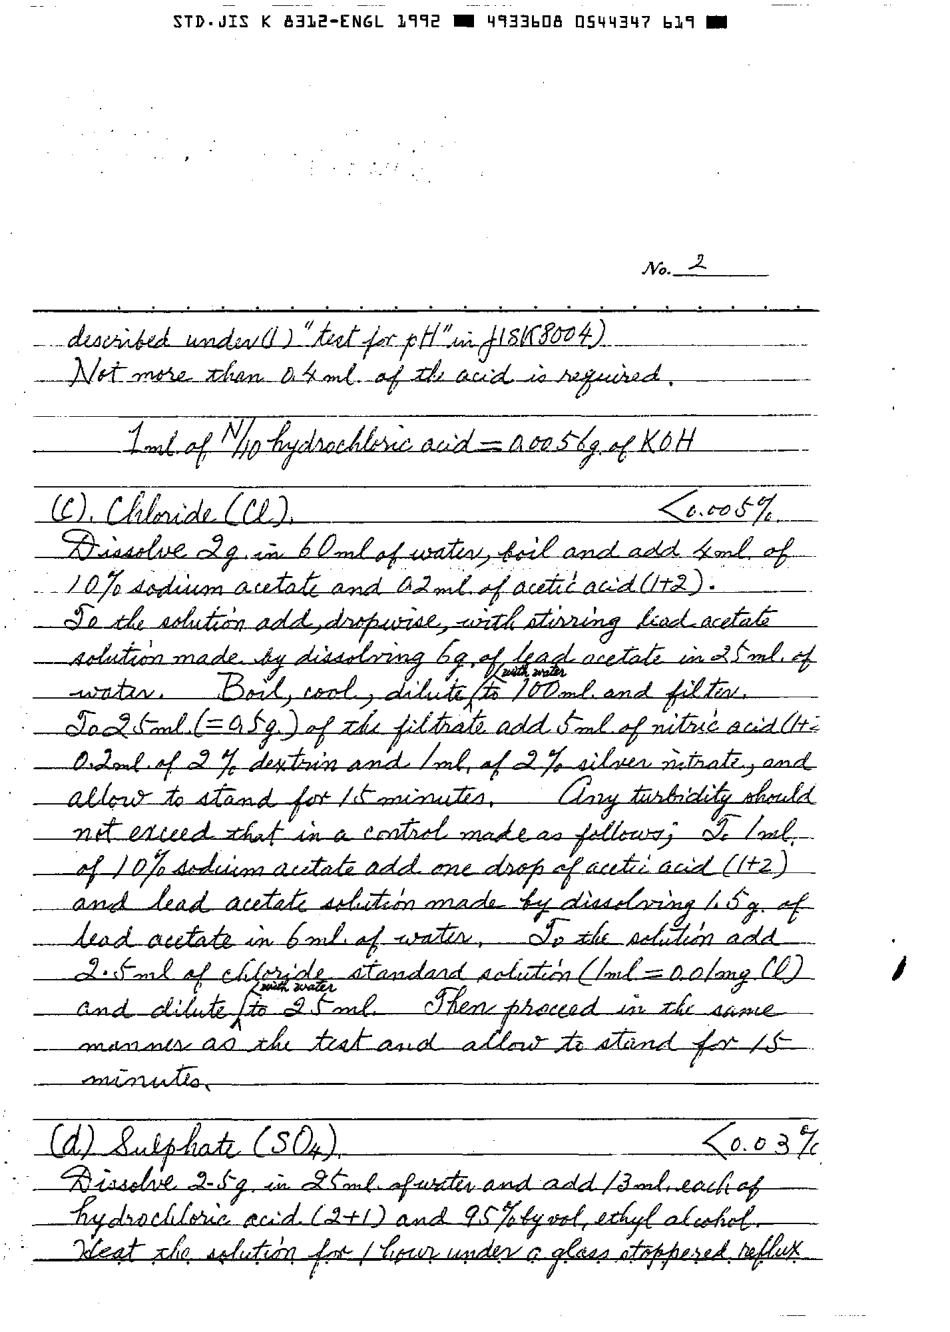 STD.JIS K 8312-ENGL 1992 ■ 4933608 0544347 619 ■
No. 2
described under (1) "test for pH" in JIS K 8004)
Not more than 0.4 ml. of the acid is required.
1 ml. of N/10 hydrochloric acid = 0.0056 g. of KOH
(C). Chloride (Cl). <0.005%
Dissolve 2g. in 60 ml of water, boil and add 4 ml. of
10% sodium acetate and 0.2 ml. of acetic acid (1+2).
To the solution add, dropwise, with stirring lead acetate
solution made by dissolving 6g. of lead acetate in 25 ml. of
water. Boil, cool, dilute with water to 100 ml. and filter.
To 25 ml. (=0.5g.) of the filtrate add 5 ml. of nitric acid (1+
0.2 ml. of 2% dextrin and 1 ml. of 2% silver nitrate, and
allow to stand for 15 minutes. Any turbidity should
not exceed that in a control made as follows; To 1 ml.
of 10% sodium acetate add one drop of acetic acid (1+2)
and lead acetate solution made by dissolving 1.5 g. of
lead acetate in 6 ml. of water. To the solution add
2.5 ml of chloride standard solution (1 ml = 0.01 mg Cl)
and dilute with water to 25 ml. Then proceed in the same
manner as the test and allow to stand for 15
minutes.
(d) Sulphate (SO₄). <0.03%
Dissolve 2.5g. in 25 ml. of water and add 13 ml. each of
hydrochloric acid (2+1) and 95% by vol, ethyl alcohol.
Heat the solution for 1 hour under a glass stoppered reflux